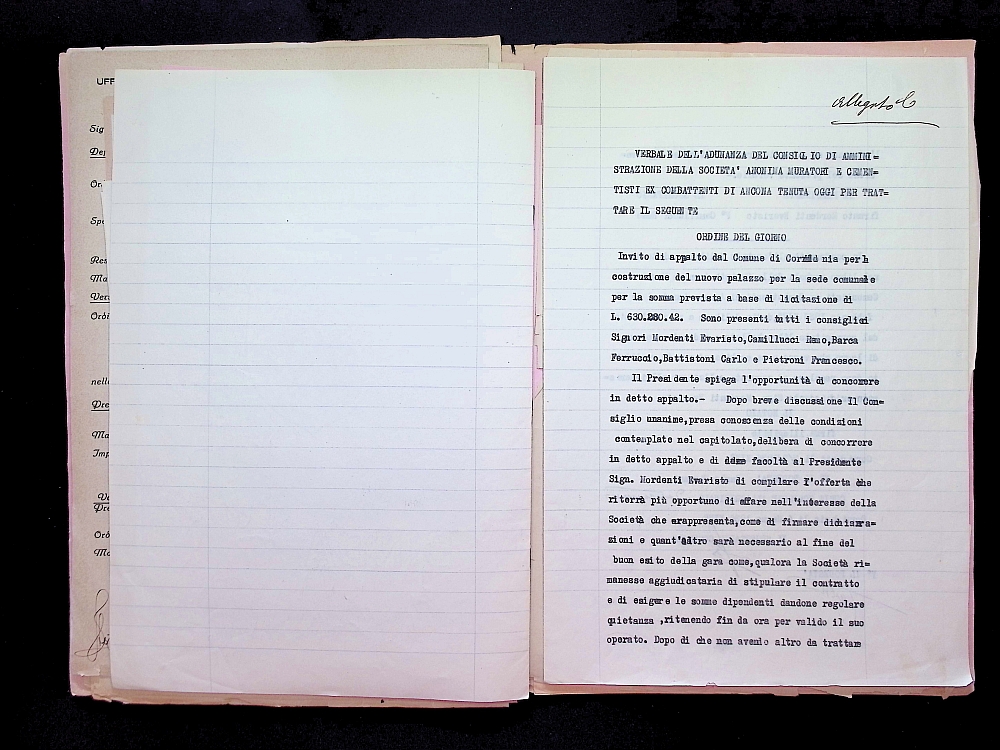 UFF
Sig
Dep
Or
Spe
Res
Ma
Ver
Orbi
nell
Pre
Ma
Imp
Va
Pre
Orb
Ma
Allegato C
VERBALE DELL'ADUNANZA DEL CONSIGLIO DI AMMINI=
STRAZIONE DELLA SOCIETA' ANONIMA MURATORI E CEMEN=
TISTI EX COMBATTENTI DI ANCONA TENUTA OGGI PER TRAT=
TARE IL SEGUENTE
ORDINE DEL GIORNO
Invito di appalto dal Comune di Corridonia per la
costruzione del nuovo palazzo per la sede comunale
per la somma prevista a base di licitazione di
L. 630.280.42. Sono presenti tutti i consiglieri
Signori Mordenti Evaristo,Camillucci Remo,Barca
Ferruccio,Battistoni Carlo e Pietroni Francesco.
Il Presidente spiega l'opportunità di concorrere
in detto appalto.- Dopo breve discussione Il Con=
siglio unanime,presa conoscenza delle condizioni
contemplate nel capitolato,delibera di concorrere
in detto appalto e di dare facoltà al Presidente
Sign. Mordenti Evaristo di compilare l'offerta che
riterrà più opportuno di affare nell'interesse della
Società che rappresenta,come di firmare dichiara=
zioni e quant'altro sarà necessario al fine del
buon esito della gara come,qualora la Società ri=
manesse aggiudicataria di stipulare il contratto
e di esigere le somme dipendenti dandone regolare
quietanza ,ritenendo fin da ora per valido il suo
operato. Dopo di che non avendo altro da trattare